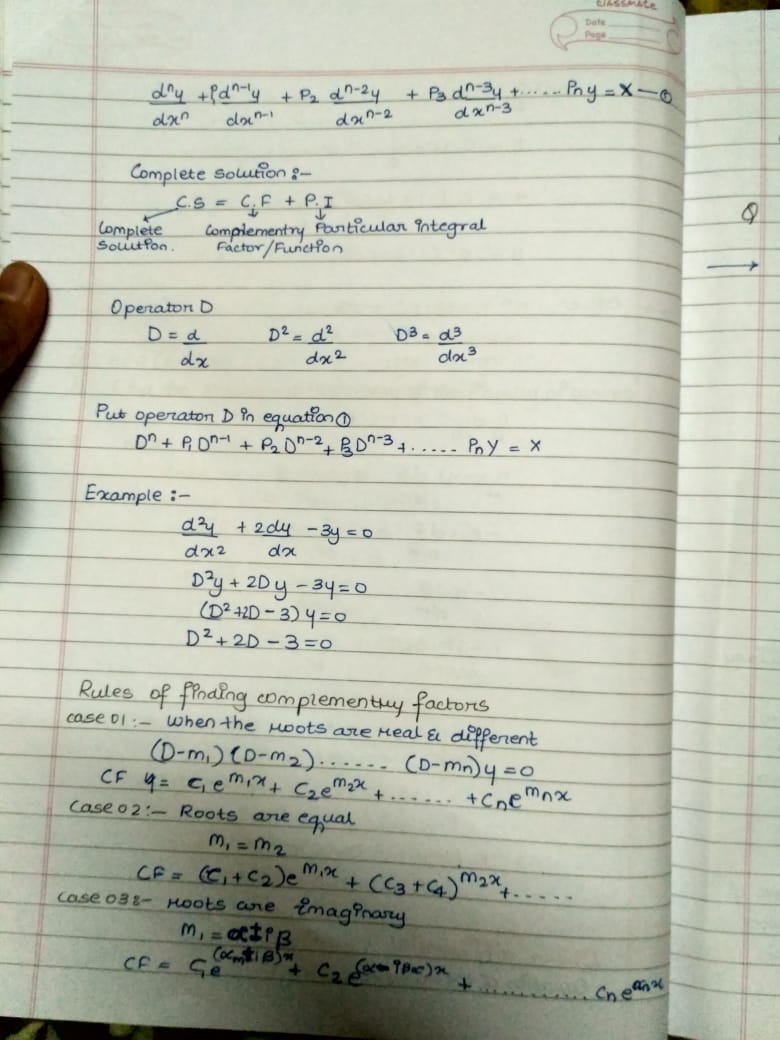 classmate
Date
Page
dⁿy/dxⁿ + P₁ dⁿ⁻¹y/dxⁿ⁻¹ + P₂ dⁿ⁻²y/dxⁿ⁻² + P₃ dⁿ⁻³y/dxⁿ⁻³ + ...... Pₙy = X —①
Complete Solution :-
C.S = C.F + P.I
Complete Solution. Complementry Factor/Function Particular integral
Operator D
D = d/dx D² = d²/dx² D³ = d³/dx³
Put operator D in equation ①
Dⁿ + P₁Dⁿ⁻¹ + P₂Dⁿ⁻² + P₃Dⁿ⁻³ + ..... PₙY = X
Example :-
d²y/dx² + 2dy/dx - 3y = 0
D²y + 2Dy - 3y = 0
(D² + 2D - 3) y = 0
D² + 2D - 3 = 0
Rules of finding complementry factors
case 01 :- When the roots are real & different
(D-m₁) (D-m₂) ...... (D-mn)y = 0
CF y = c₁e^m₁x + C₂e^m₂x + ...... + Cₙe^mₙx
Case 02 :- Roots are equal
m₁ = m₂
CF = (C₁ + C₂)e^m₁x + (C₃ + C₄)^m₂x + .....
Case 03 :- roots are imaginary
m₁ = α ± iβ
CF = C₁e + C₂e + ........... Cₙe